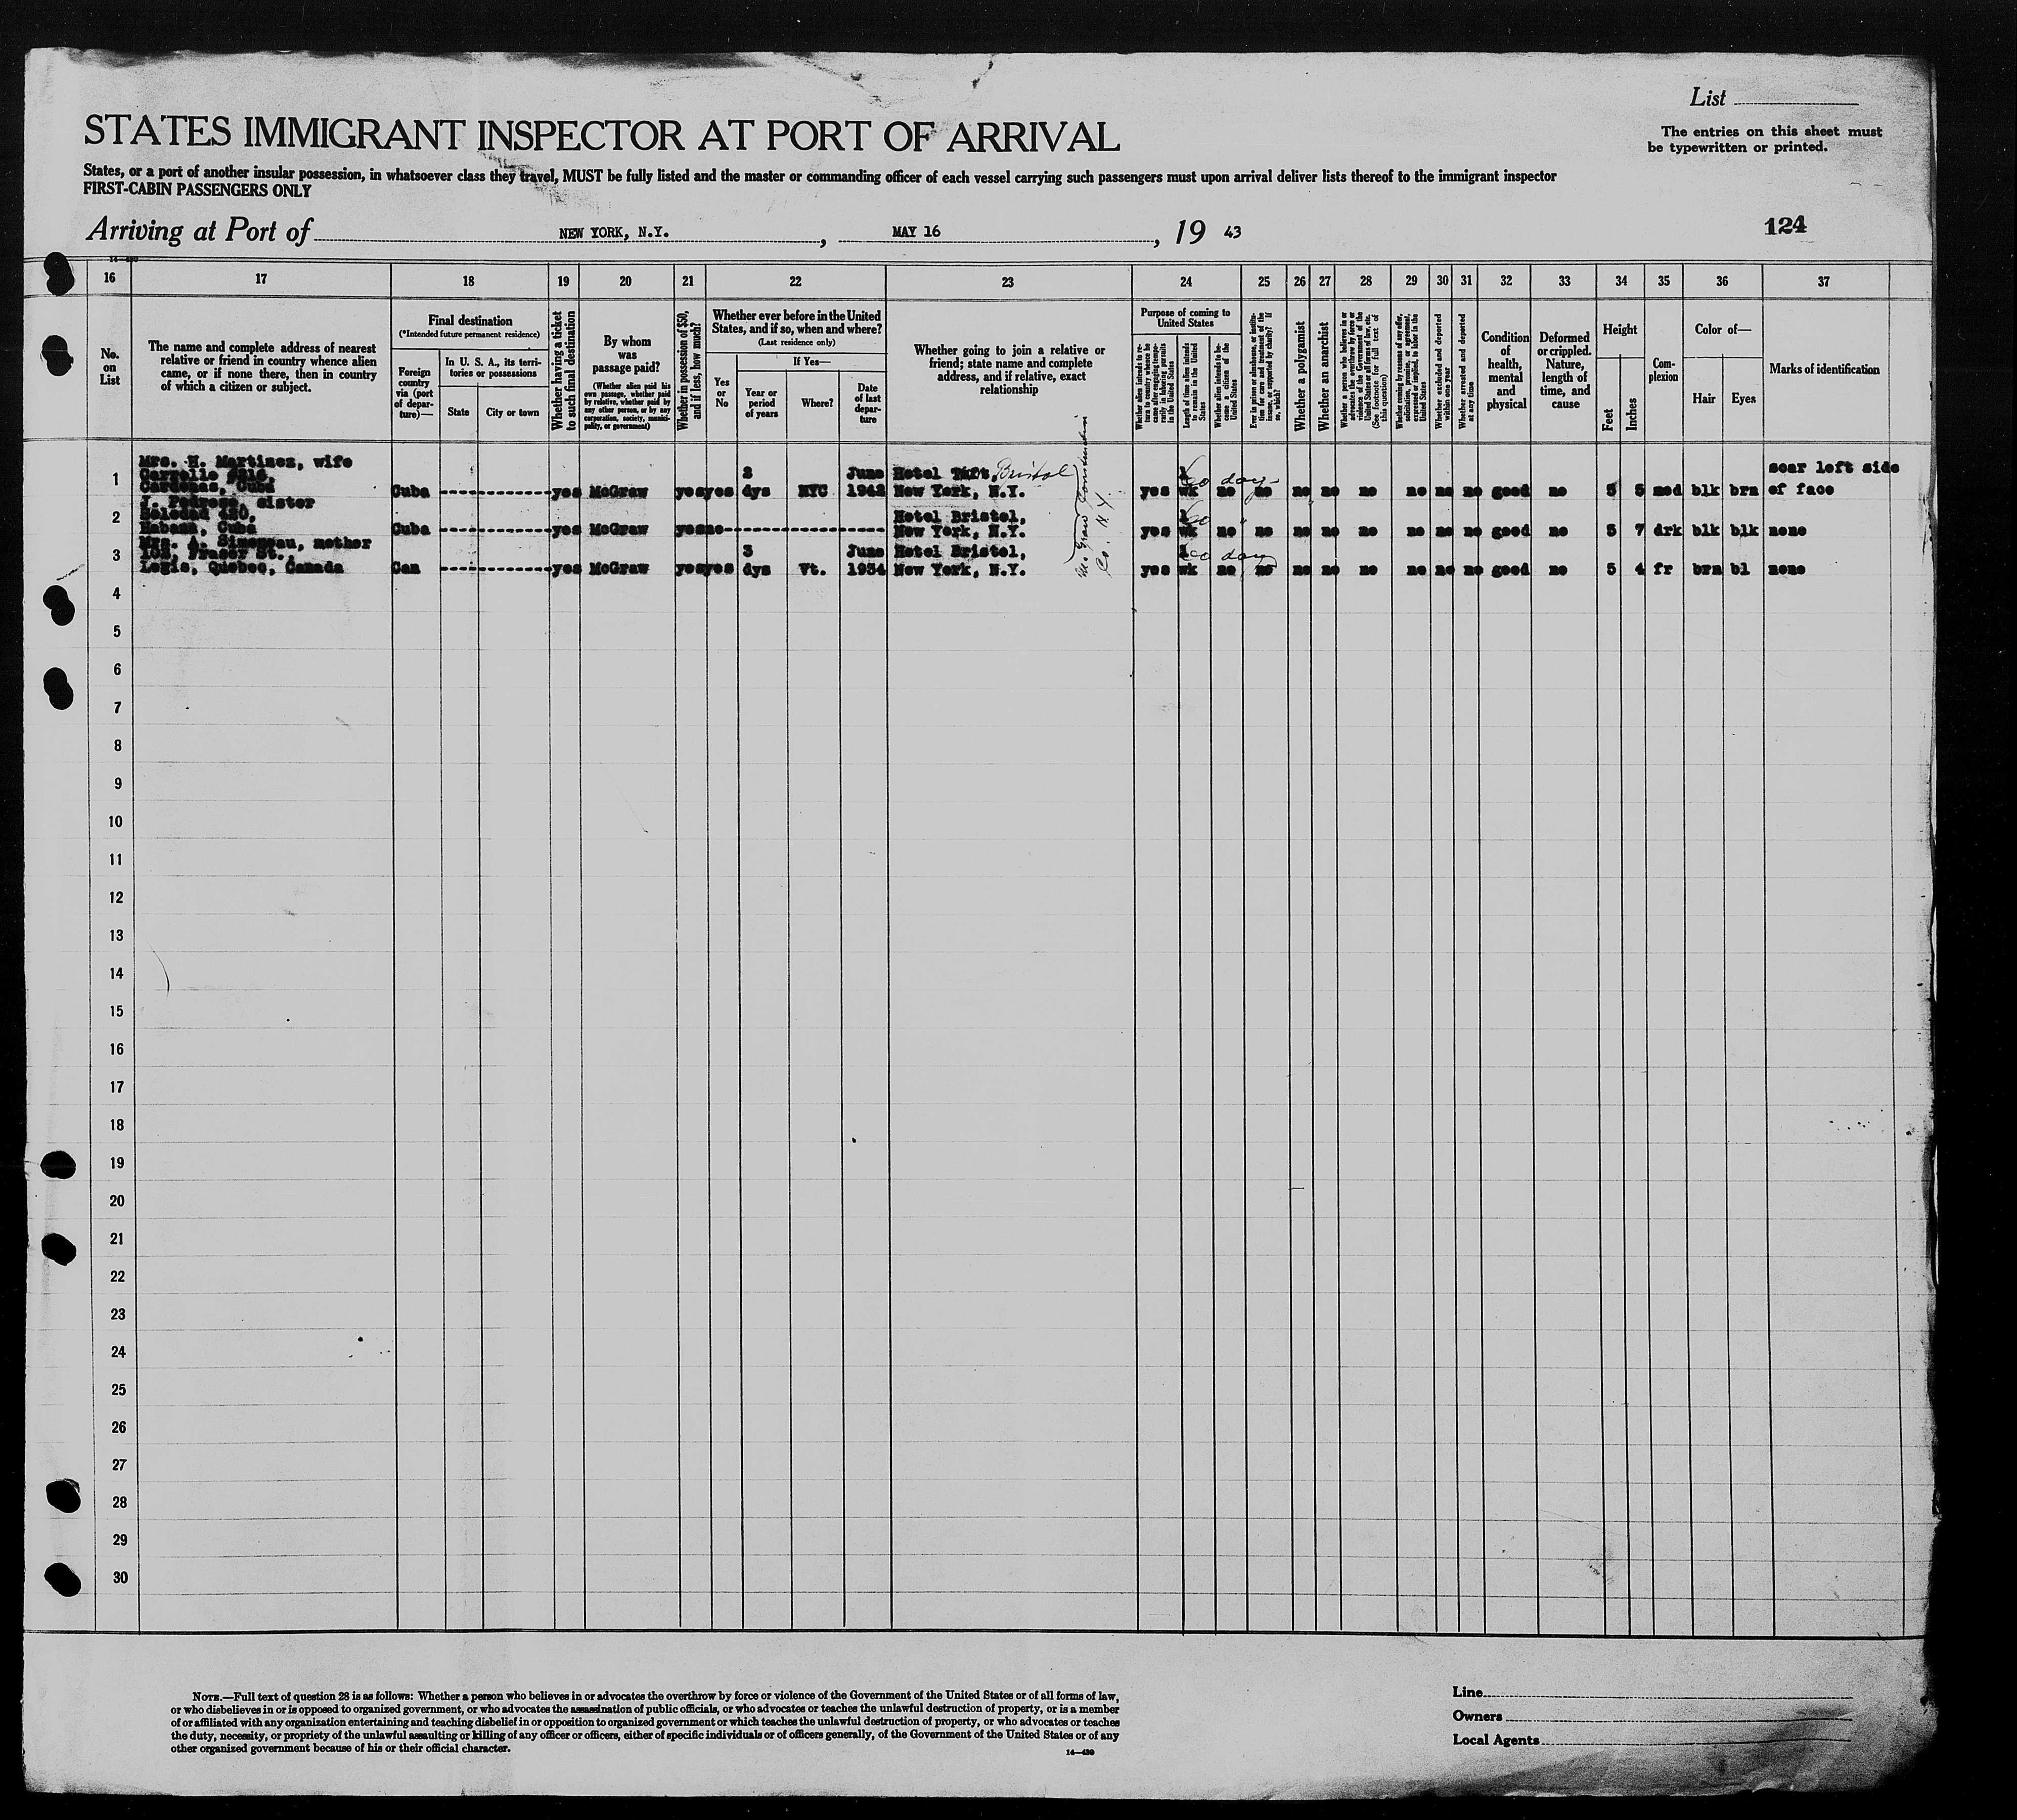 List
STATES IMMIGRANT INSPECTOR AT PORT OF ARRIVAL
The entries on this sheet must
be typewritten or printed.
States, or a port of another insular possession, in whatsoever class they travel, MUST be fully listed and the master or commanding officer of each vessel carrying such passengers must upon arrival deliver lists thereof to the immigrant inspector
FIRST-CABIN PASSENGERS ONLY
Arriving at Port of NEW YORK, N.Y., MAY 16, 19 43
124
16 17 18 19 20 21 22 23 24 25 26 27 28 29 30 31 32 33 34 35 36 37
No. on List
The name and complete address of nearest
relative or friend in country whence alien
came, or if none there, then in country
of which a citizen or subject.
Final destination
(*Intended future permanent residence)
Foreign country via (port of departure)—
In U. S. A., its territories or possessions
State
City or town
Whether having a ticket to such final destination
By whom was passage paid?
(Whether alien paid his own passage, whether paid by relative, whether paid by any other person, or by any corporation, society, municipality, or government)
Whether in possession of $50, and if less, how much?
Whether ever before in the United
States, and if so, when and where?
(Last residence only)
Yes or No
If Yes—
Year or period of years
Where?
Date of last departure
Whether going to join a relative or
friend; state name and complete
address, and if relative, exact
relationship
Purpose of coming to United States
Whether alien intends to return to country whence he came after engaging temporarily in laboring pursuits in the United States
Length of time alien intends to remain in the United States
Whether alien intends to become a citizen of the United States
Ever in prison or almshouse, or institution for care and treatment of the insane, or supported by charity? If so, which?
Whether a polygamist
Whether an anarchist
Whether a person who believes in or advocates the overthrow by force or violence of the Government of the United States or all forms of law, etc. (See footnote for full text of this question)
Whether coming by reason of any offer, solicitation, promise, or agreement, expressed or implied, to labor in the United States
Whether excluded and deported within one year
Whether arrested and deported at any time
Condition of health, mental and physical
Deformed or crippled. Nature, length of time, and cause
Height
Feet
Inches
Complexion
Color of—
Hair
Eyes
Marks of identification
Mrs. H. Martinez, wife
Cardenas, Cuba
1 Cuba yes McGraw yes yes 2 dys NYC June 1942 Hotel Taft, Bristol New York, N.Y. yes 1 wk 60 days no no no no no no no no good no 5 5 med blk brn scar left side of face
J. Pedroso, sister
Soledad 480,
Habana, Cuba
2 Cuba yes McGraw yes no Hotel Bristol, New York, N.Y. yes 1 wk 60 " no no no no no no no no good no 5 7 drk blk blk none
Mrs. A. Simoneau, mother
102, Fraser St.,
Levis, Quebec, Canada
3 Can yes McGraw yes yes 3 dys Vt. June 1934 Hotel Bristol, New York, N.Y. yes 1 wk 60 days no no no no no no no no good no 5 4 fr brn bl none
McGraw Construction
Co. N.Y.
4
5
6
7
8
9
10
11
12
13
14
15
16
17
18
19
20
21
22
23
24
25
26
27
28
29
30
NOTE.—Full text of question 28 is as follows: Whether a person who believes in or advocates the overthrow by force or violence of the Government of the United States or of all forms of law,
or who disbelieves in or is opposed to organized government, or who advocates the assassination of public officials, or who advocates or teaches the unlawful destruction of property, or is a member
of or affiliated with any organization entertaining and teaching disbelief in or opposition to organized government or which teaches the unlawful destruction of property, or who advocates or teaches
the duty, necessity, or propriety of the unlawful assaulting or killing of any officer or officers, either of specific individuals or of officers generally, of the Government of the United States or of any
other organized government because of his or their official character.
14—430
Line
Owners
Local Agents